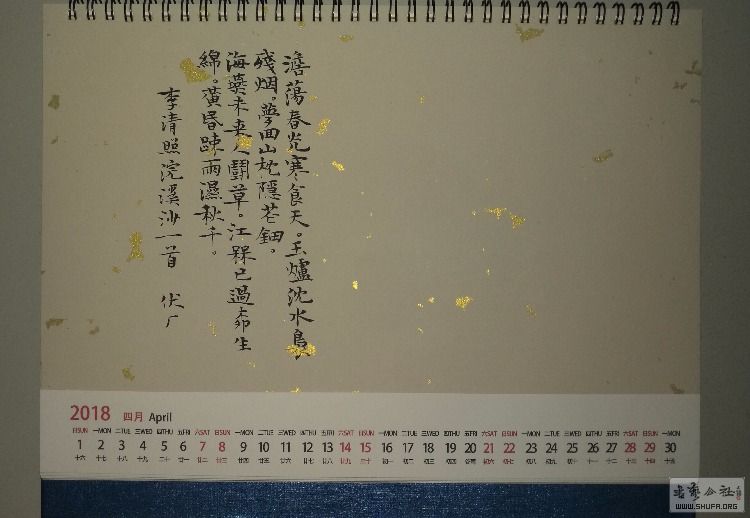 澹蕩春光寒食天。玉爐沈水裊
殘烟。夢回山枕隱花鈿。
海燕未来人鬪草。江楳已過柳生
綿。黃昏踈雨濕秋千。
李清照浣溪沙一首 伏厂
2018 四月 April
日SUN 一MON 二TUE 三WED 四THU 五FRI 六SAT 日SUN 一MON 二TUE 三WED 四THU 五FRI 六SAT 日SUN 一MON 二TUE 三WED 四THU 五FRI 六SAT 日SUN 一MON 二TUE 三WED 四THU 五FRI 六SAT 日SUN 一MON
1 2 3 4 5 6 7 8 9 10 11 12 13 14 15 16 17 18 19 20 21 22 23 24 25 26 27 28 29 30
十六 十七 十八 十九 二十 廿一 廿二 廿三 廿四 廿五 廿六 廿七 廿八 廿九 三十 初一 初二 初三 初四 谷雨 初六 初七 初八 初九 初十 十一 十二 十三 十四 十五
WWW.SHUFA.ORG